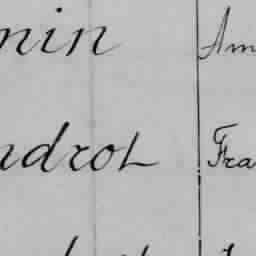 nin Am
ndrot Fra